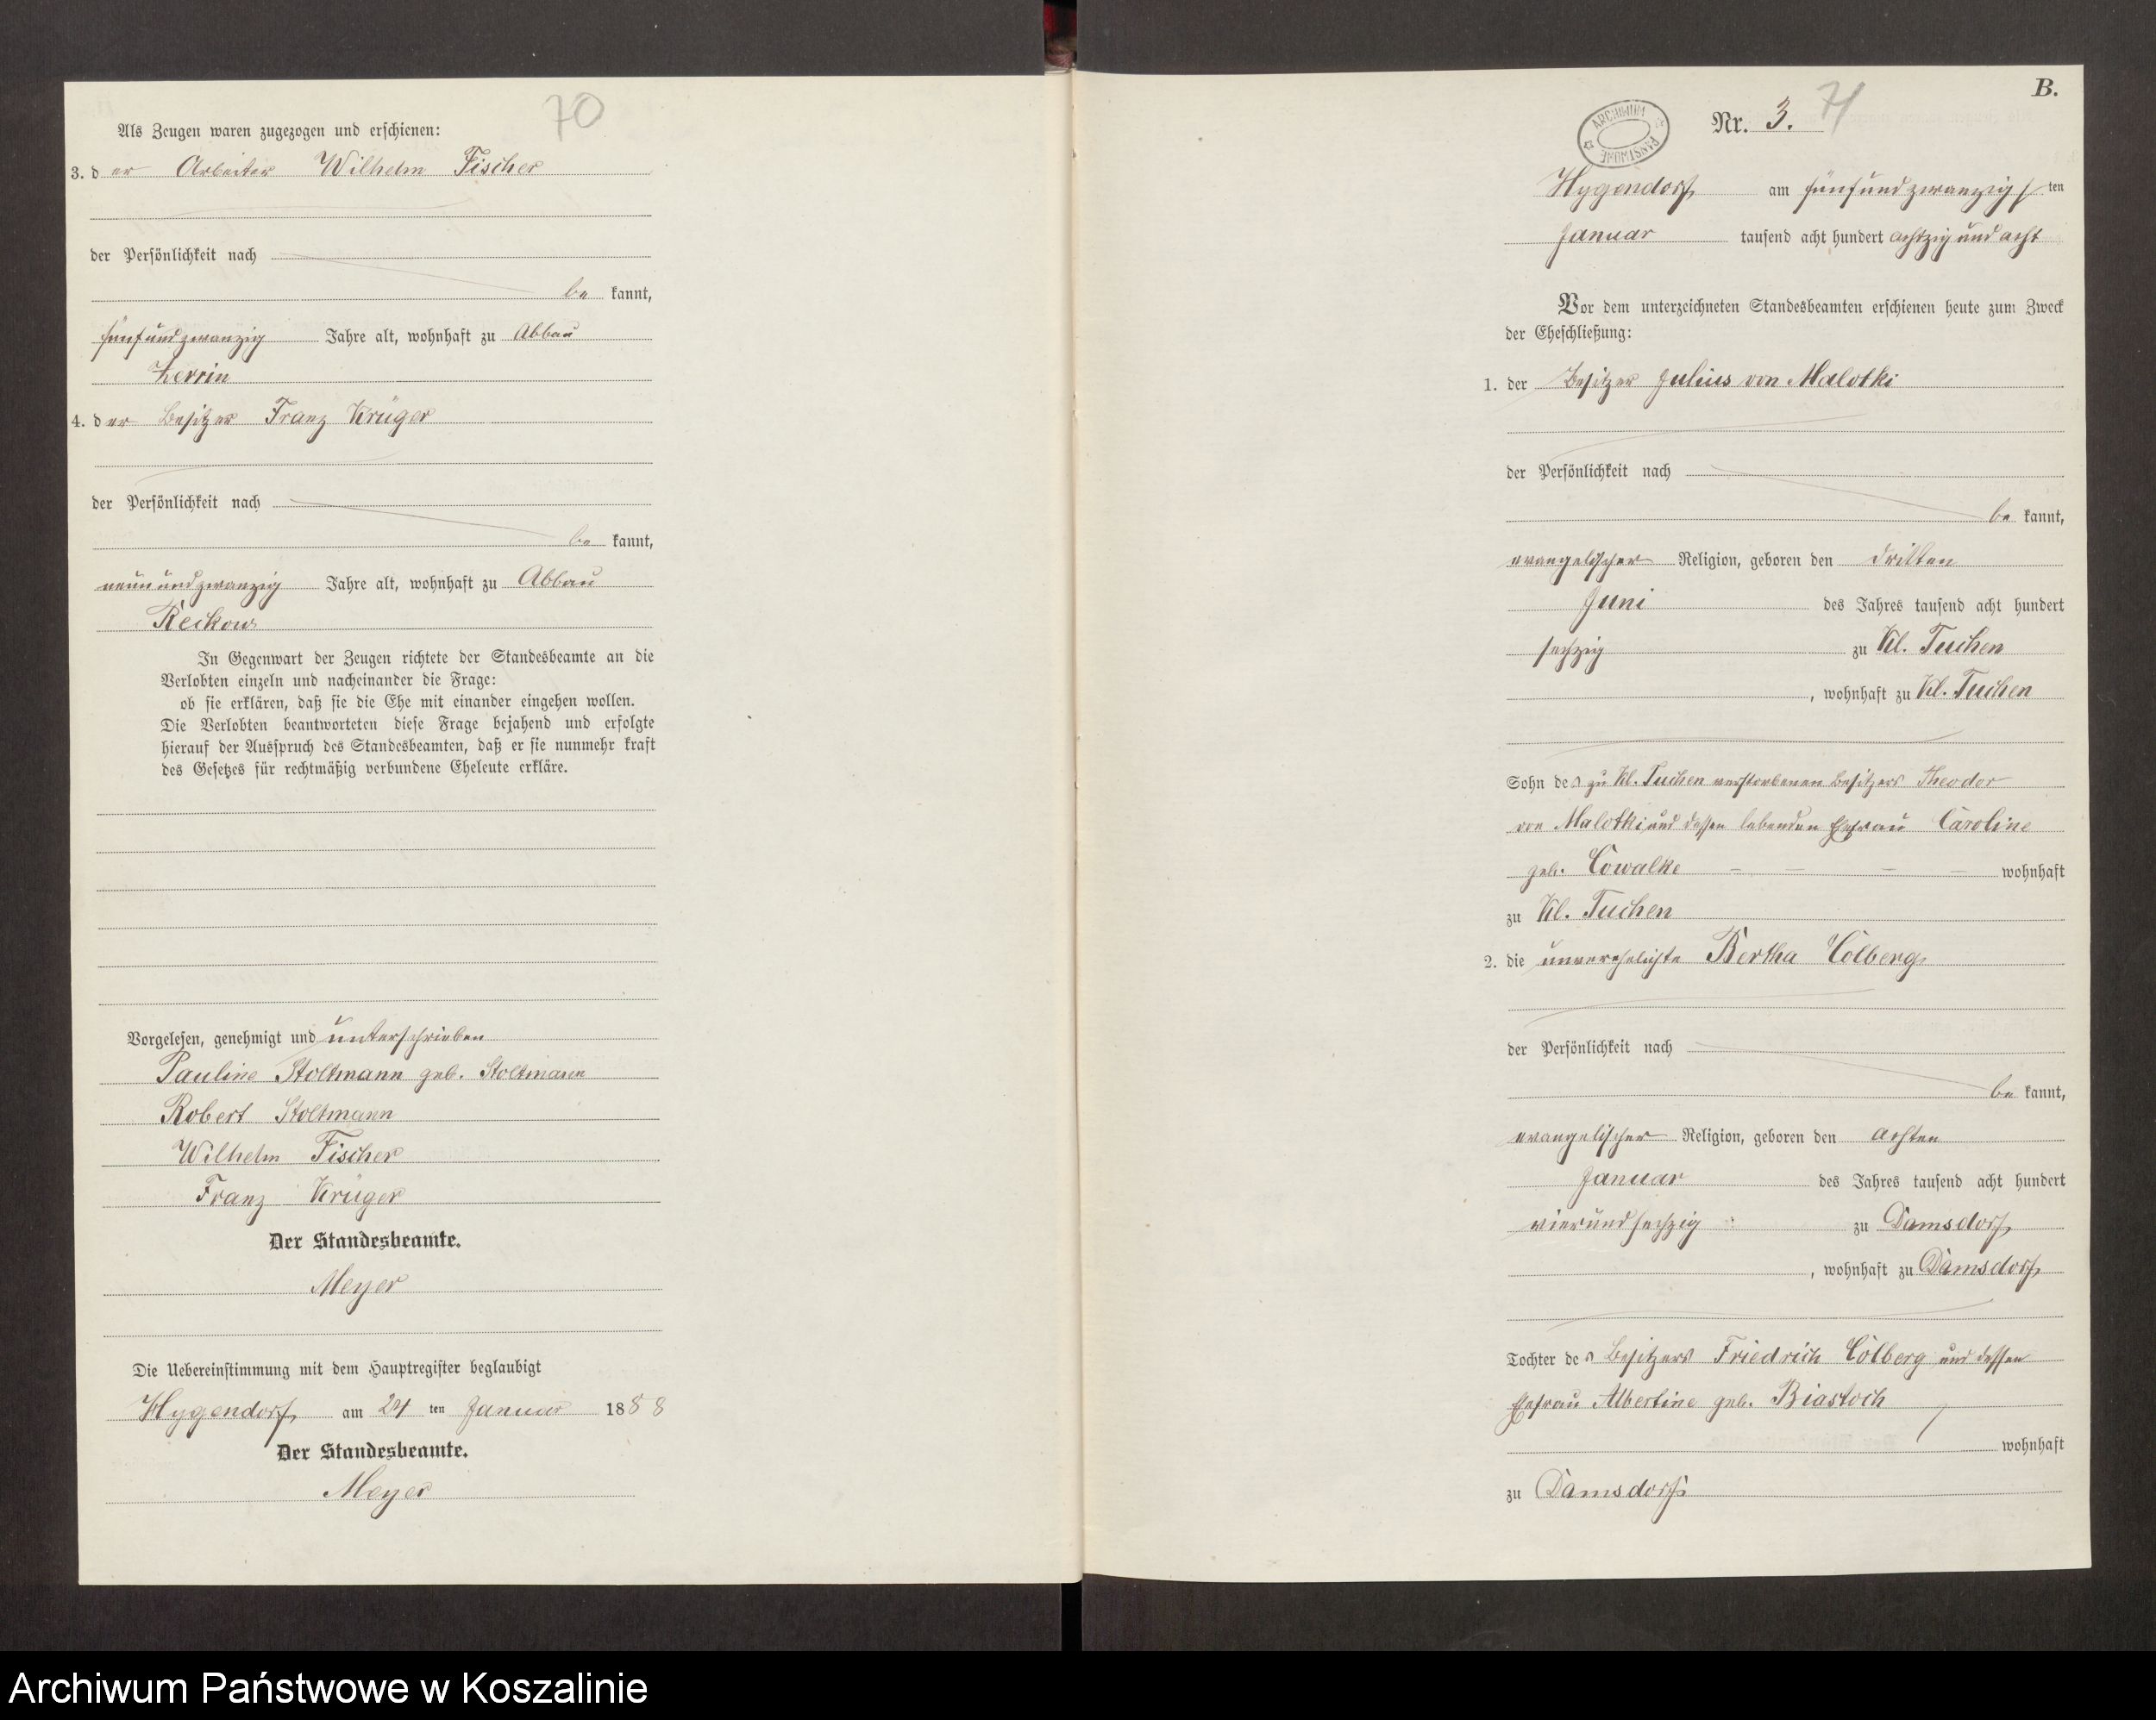 70
Als Zeugen waren zugezogen und erschienen:
3. der Arbeiter Wilhelm Fischer
der Persönlichkeit nach
be kannt,
fünfundzwanzig Jahre alt, wohnhaft zu Abbau
Zerrin
4. der Besitzer Franz Krüger
der Persönlichkeit nach
be kannt,
neunundzwanzig Jahre alt, wohnhaft zu Abbau
Reckow
In Gegenwart der Zeugen richtete der Standesbeamte an die
Verlobten einzeln und nacheinander die Frage:
ob sie erklären, daß sie die Ehe mit einander eingehen wollen.
Die Verlobten beantworteten diese Frage bejahend und erfolgte
hierauf der Ausspruch des Standesbeamten, daß er sie nunmehr kraft
des Gesetzes für rechtmäßig verbundene Eheleute erkläre.
Vorgelesen, genehmigt und unterschrieben
Pauline Stoltmann geb. Stoltmann
Robert Stoltmann
Wilhelm Fischer
Franz Krüger
Der Standesbeamte.
Meyer
Die Uebereinstimmung mit dem Hauptregister beglaubigt
Hygendorf am 24 ten Januar 1888
Der Standesbeamte.
Meyer
B.
ARCHIWUM PAŃSTWOWE
Nr. 3. 71
Hygendorf am fünfundzwanzigsten
Januar tausend acht hundert achtzig und acht
Vor dem unterzeichneten Standesbeamten erschienen heute zum Zweck
der Eheschließung:
1. der Besitzer Julius von Malotki
der Persönlichkeit nach
be kannt,
evangelischer Religion, geboren den dritten
Juni des Jahres tausend acht hundert
sechzig zu Kl. Tuchen
, wohnhaft zu Kl. Tuchen
Sohn des zu Kl. Tuchen verstorbenen Besitzers Theodor
von Malotki und dessen lebenden Ehefrau Caroline
geb. Cowalke - - - - wohnhaft
zu Kl. Tuchen
2. die unverehelichte Bertha Cölberg
der Persönlichkeit nach
be kannt,
evangelischer Religion, geboren den achten
Januar des Jahres tausend acht hundert
vierundsechzig zu Damsdorf
, wohnhaft zu Damsdorf
Tochter des Besitzers Friedrich Cölberg und dessen
Ehefrau Albertine geb. Biastoch
wohnhaft
zu Damsdorf
Archiwum Państwowe w Koszalinie